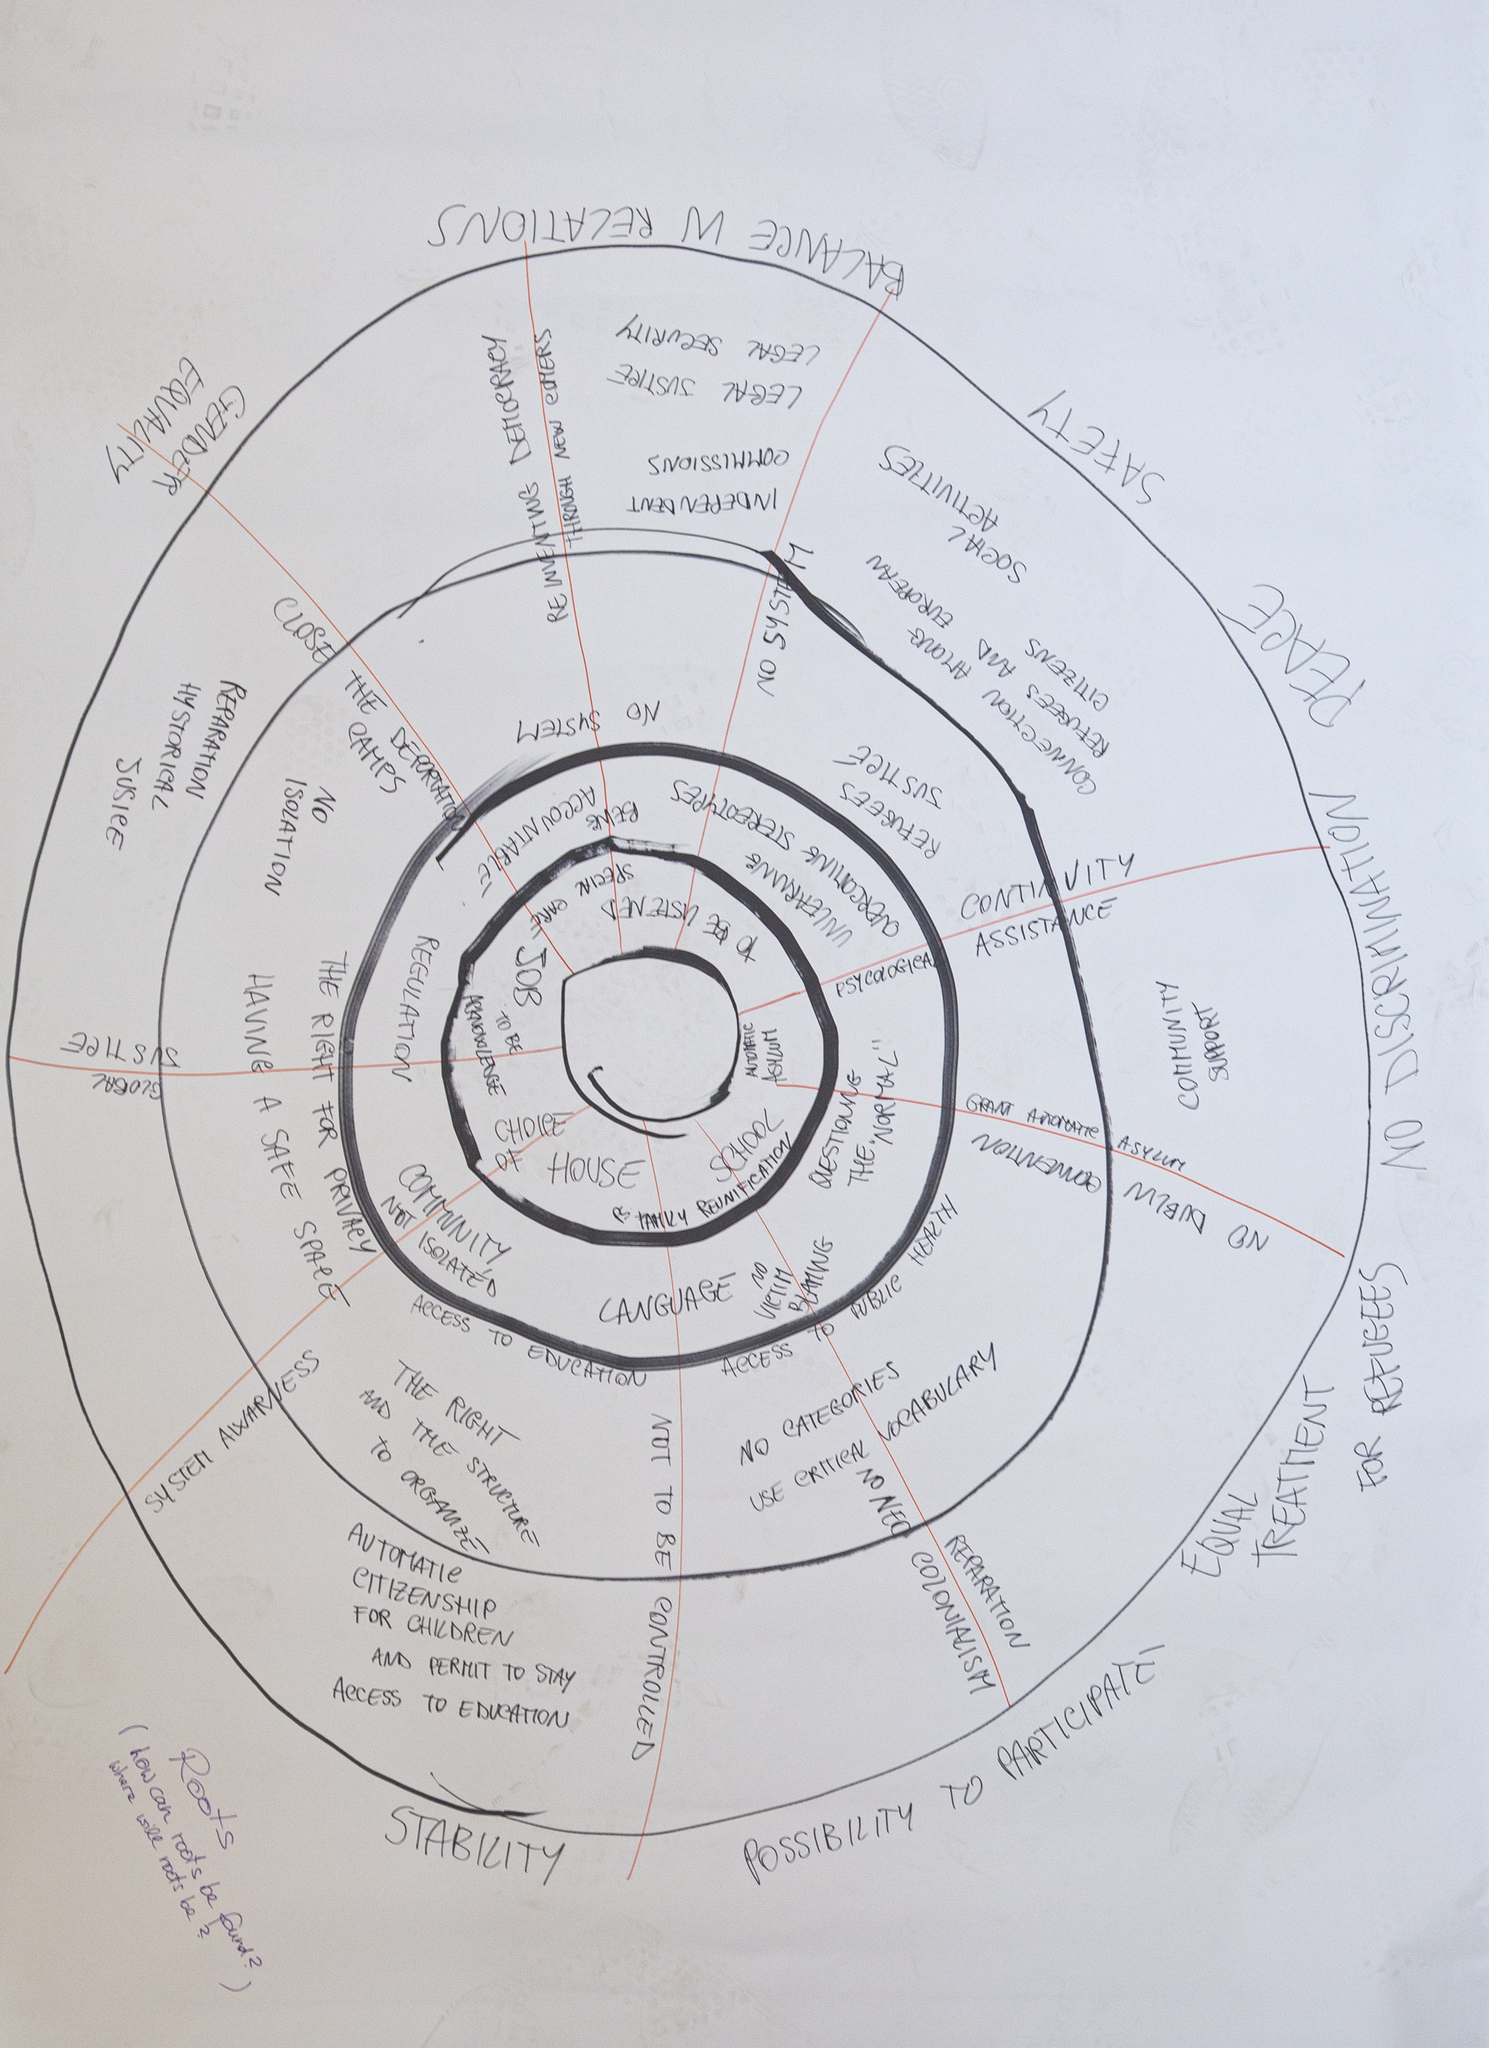 BALANCE IN RELATIONS
SAFETY
PEACE
NO DISCRIMINATION
FOR REFUGEES
EQUAL
TREATMENT
POSSIBILITY TO PARTICIPATE
STABILITY
GENDER
EQUALITY
LEGAL SECURITY
LEGAL JUSTICE
INDEPENDENT
COMMISSIONS
REINVENTING DEMOCRACY
THROUGH NEW OTHERS
NO SYSTEM
SOCIAL
ACTIVITIES
CONNECTION AMONG
REFUGEES AND EUROPEAN
CITIZENS
CONTINUITY
PSYCOLOGICAL ASSISTANCE
COMMUNITY
SUPPORT
GRANT AUTOMATIC ASYLUM
NO DUBLIN
CONVENTION
REPARATION
NO NEO COLONIALISM
NOT TO BE CONTROLLED
AUTOMATIC
CITIZENSHIP
FOR CHILDREN
AND PERMIT TO STAY
ACCESS TO EDUCATION
SYSTEM AWARNESS
GLOBAL
JUSTICE
REPARATION
HYSTORICAL
JUSICE
CLOSE THE DEPORTATION
CAMPS
NO
ISOLATION
THE RIGHT FOR PRIVACY
HAVING A SAFE SPACE
THE RIGHT
AND THE STRUCTURE
TO ORGANIZE
ACCESS TO EDUCATION
ACCESS TO PUBLIC HEALTH
NO CATEGORIES
USE CRITICAL VOCABULARY
NO SYSTEM
REFUGEES
JUSTICE
BEING
ACCOUNTABLE
UNLEARNING
OVERCOMING STEREOTYPES
QUESTIONING
THE "NORMAL"
NO
VICTIM
BLAMING
LANGUAGE
COMMUNITY
NOT ISOLATED
REGULATION
SPECIAL CARE
TO BE LISTENED
AUTOMATIC
ASYLUM
SCHOOL
FAMILY REUNIFICATION
HOUSE
CHOICE
TO BE
JOB
Roots
(how can roots be found?
where will roots be?)